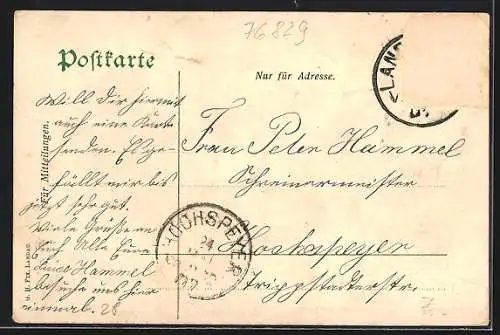 76829
Postkarte
Nur für Adresse.
Für Mitteilungen.
Will Dir hiermit
auch eine Karte
senden. Es ge-
fällt mir bis
jetzt sehr gut.
Viele Grüße an
Euch Alle Eure
Hammel
besuche uns hier
einmal.
LAN
Frau Peter Hammel
Schreinermeister
Hochspeyer
Trippstadterstr.
HOCHSPEYER
24